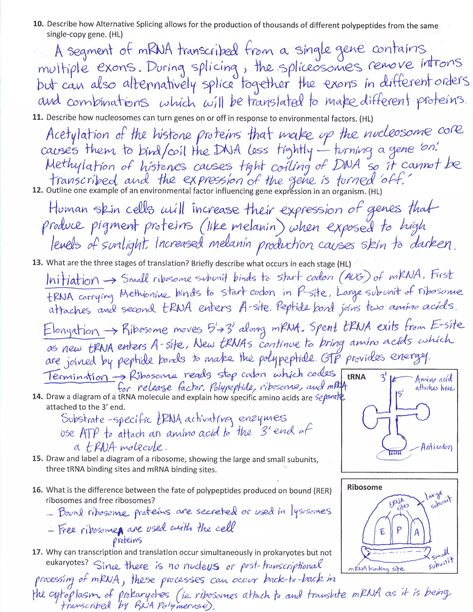 10. Describe how Alternative Splicing allows for the production of thousands of different polypeptides from the same
single-copy gene. (HL)
A segment of mRNA transcribed from a single gene contains
multiple exons. During splicing, the spliceosomes remove introns
but can also alternatively splice together the exons in different orders
and combinations which will be translated to make different proteins.
11. Describe how nucleosomes can turn genes on or off in response to environmental factors. (HL)
Acetylation of the histone proteins that make up the nucleosome core
causes them to bind/coil the DNA less tightly — turning a gene 'on'.
Methylation of histones causes tight coiling of DNA so it cannot be
transcribed and the expression of the gene is turned 'off.'
12. Outline one example of an environmental factor influencing gene expression in an organism. (HL)
Human skin cells will increase their expression of genes that
produce pigment proteins (like melanin) when exposed to high
levels of sunlight. Increased melanin production causes skin to darken.
13. What are the three stages of translation? Briefly describe what occurs in each stage (HL)
Initiation → Small ribosome subunit binds to start codon (AUG) of mRNA. First
tRNA carrying Methionine binds to start codon in P-site. Large subunit of ribosome
attaches and second tRNA enters A-site. Peptide bond joins two amino acids.
Elongation → Ribosome moves 5'→3' along mRNA. Spent tRNA exits from E-site
as new tRNA enters A-site. New tRNAs continue to bring amino acids which
are joined by peptide bonds to make the polypeptide GTP provides energy.
Termination → Ribosome reads stop codon which codes
for release factor. Polypeptide, ribosome, and mRNA
separate
14. Draw a diagram of a tRNA molecule and explain how specific amino acids are
attached to the 3' end.
Substrate-specific tRNA activating enzymes
use ATP to attach an amino acid to the 3' end of
a tRNA molecule.
tRNA
3'
Amino acid
attaches here
5'
Anticodon
15. Draw and label a diagram of a ribosome, showing the large and small subunits,
three tRNA binding sites and mRNA binding sites.
16. What is the difference between the fate of polypeptides produced on bound (RER)
ribosomes and free ribosomes?
- Bound ribosome proteins are secreted or used in lysosomes
- Free ribosome are used with the cell
proteins
Ribosome
tRNA
sites
large
subunit
E P A
small
subunit
mRNA binding site
17. Why can transcription and translation occur simultaneously in prokaryotes but not
eukaryotes?
Since there is no nucleus or post-transcriptional
processing of mRNA, these processes can occur back-to-back in
the cytoplasm of prokaryotes (ie. ribosomes attach to and translate mRNA as it is being
transcribed by RNA Polymerase).